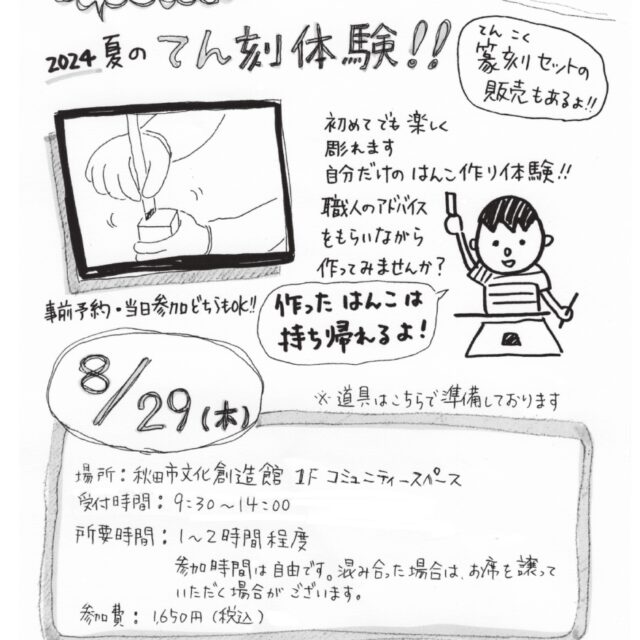 2024 夏の てん刻体験!!
てん こく
篆刻セットの
販売もあるよ!!
初めてでも楽しく
彫れます
自分だけの はんこ作り体験!!
職人のアドバイス
をもらいながら
作ってみませんか?
事前予約・当日参加どちらもOK!!
作った はんこは
持ち帰れるよ!
8/29(木)
※道具はこちらで準備しております
場所:秋田市文化創造館 1F コミュニティースペース
受付時間:9:30~14:00
所要時間:1~2時間程度
参加時間は自由です。混み合った場合は、お席を譲って
いただく場合がございます。
参加費:1,650円(税込)